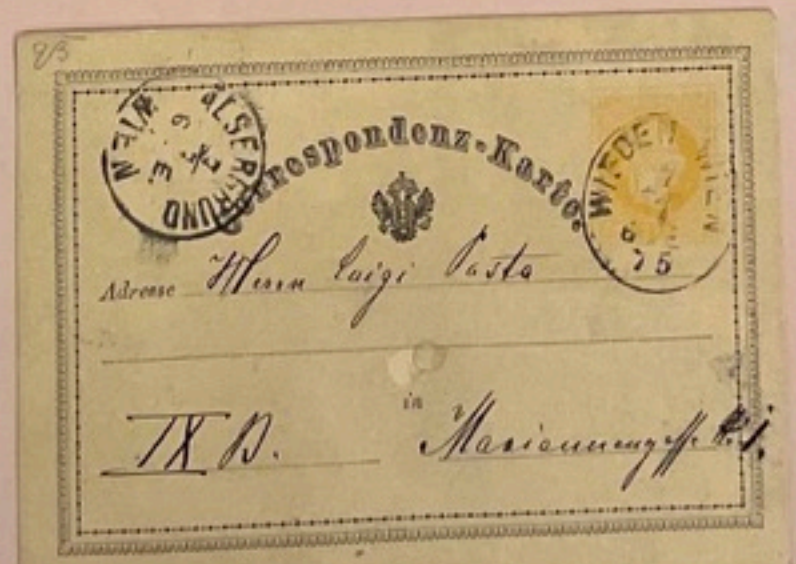 25
ALSERGRUND WIEN
Correspondenz-Karte.
WIEDEN WIEN
75
Adresse Herrn Luigi Pasta
in
IX B. Mariannengasse